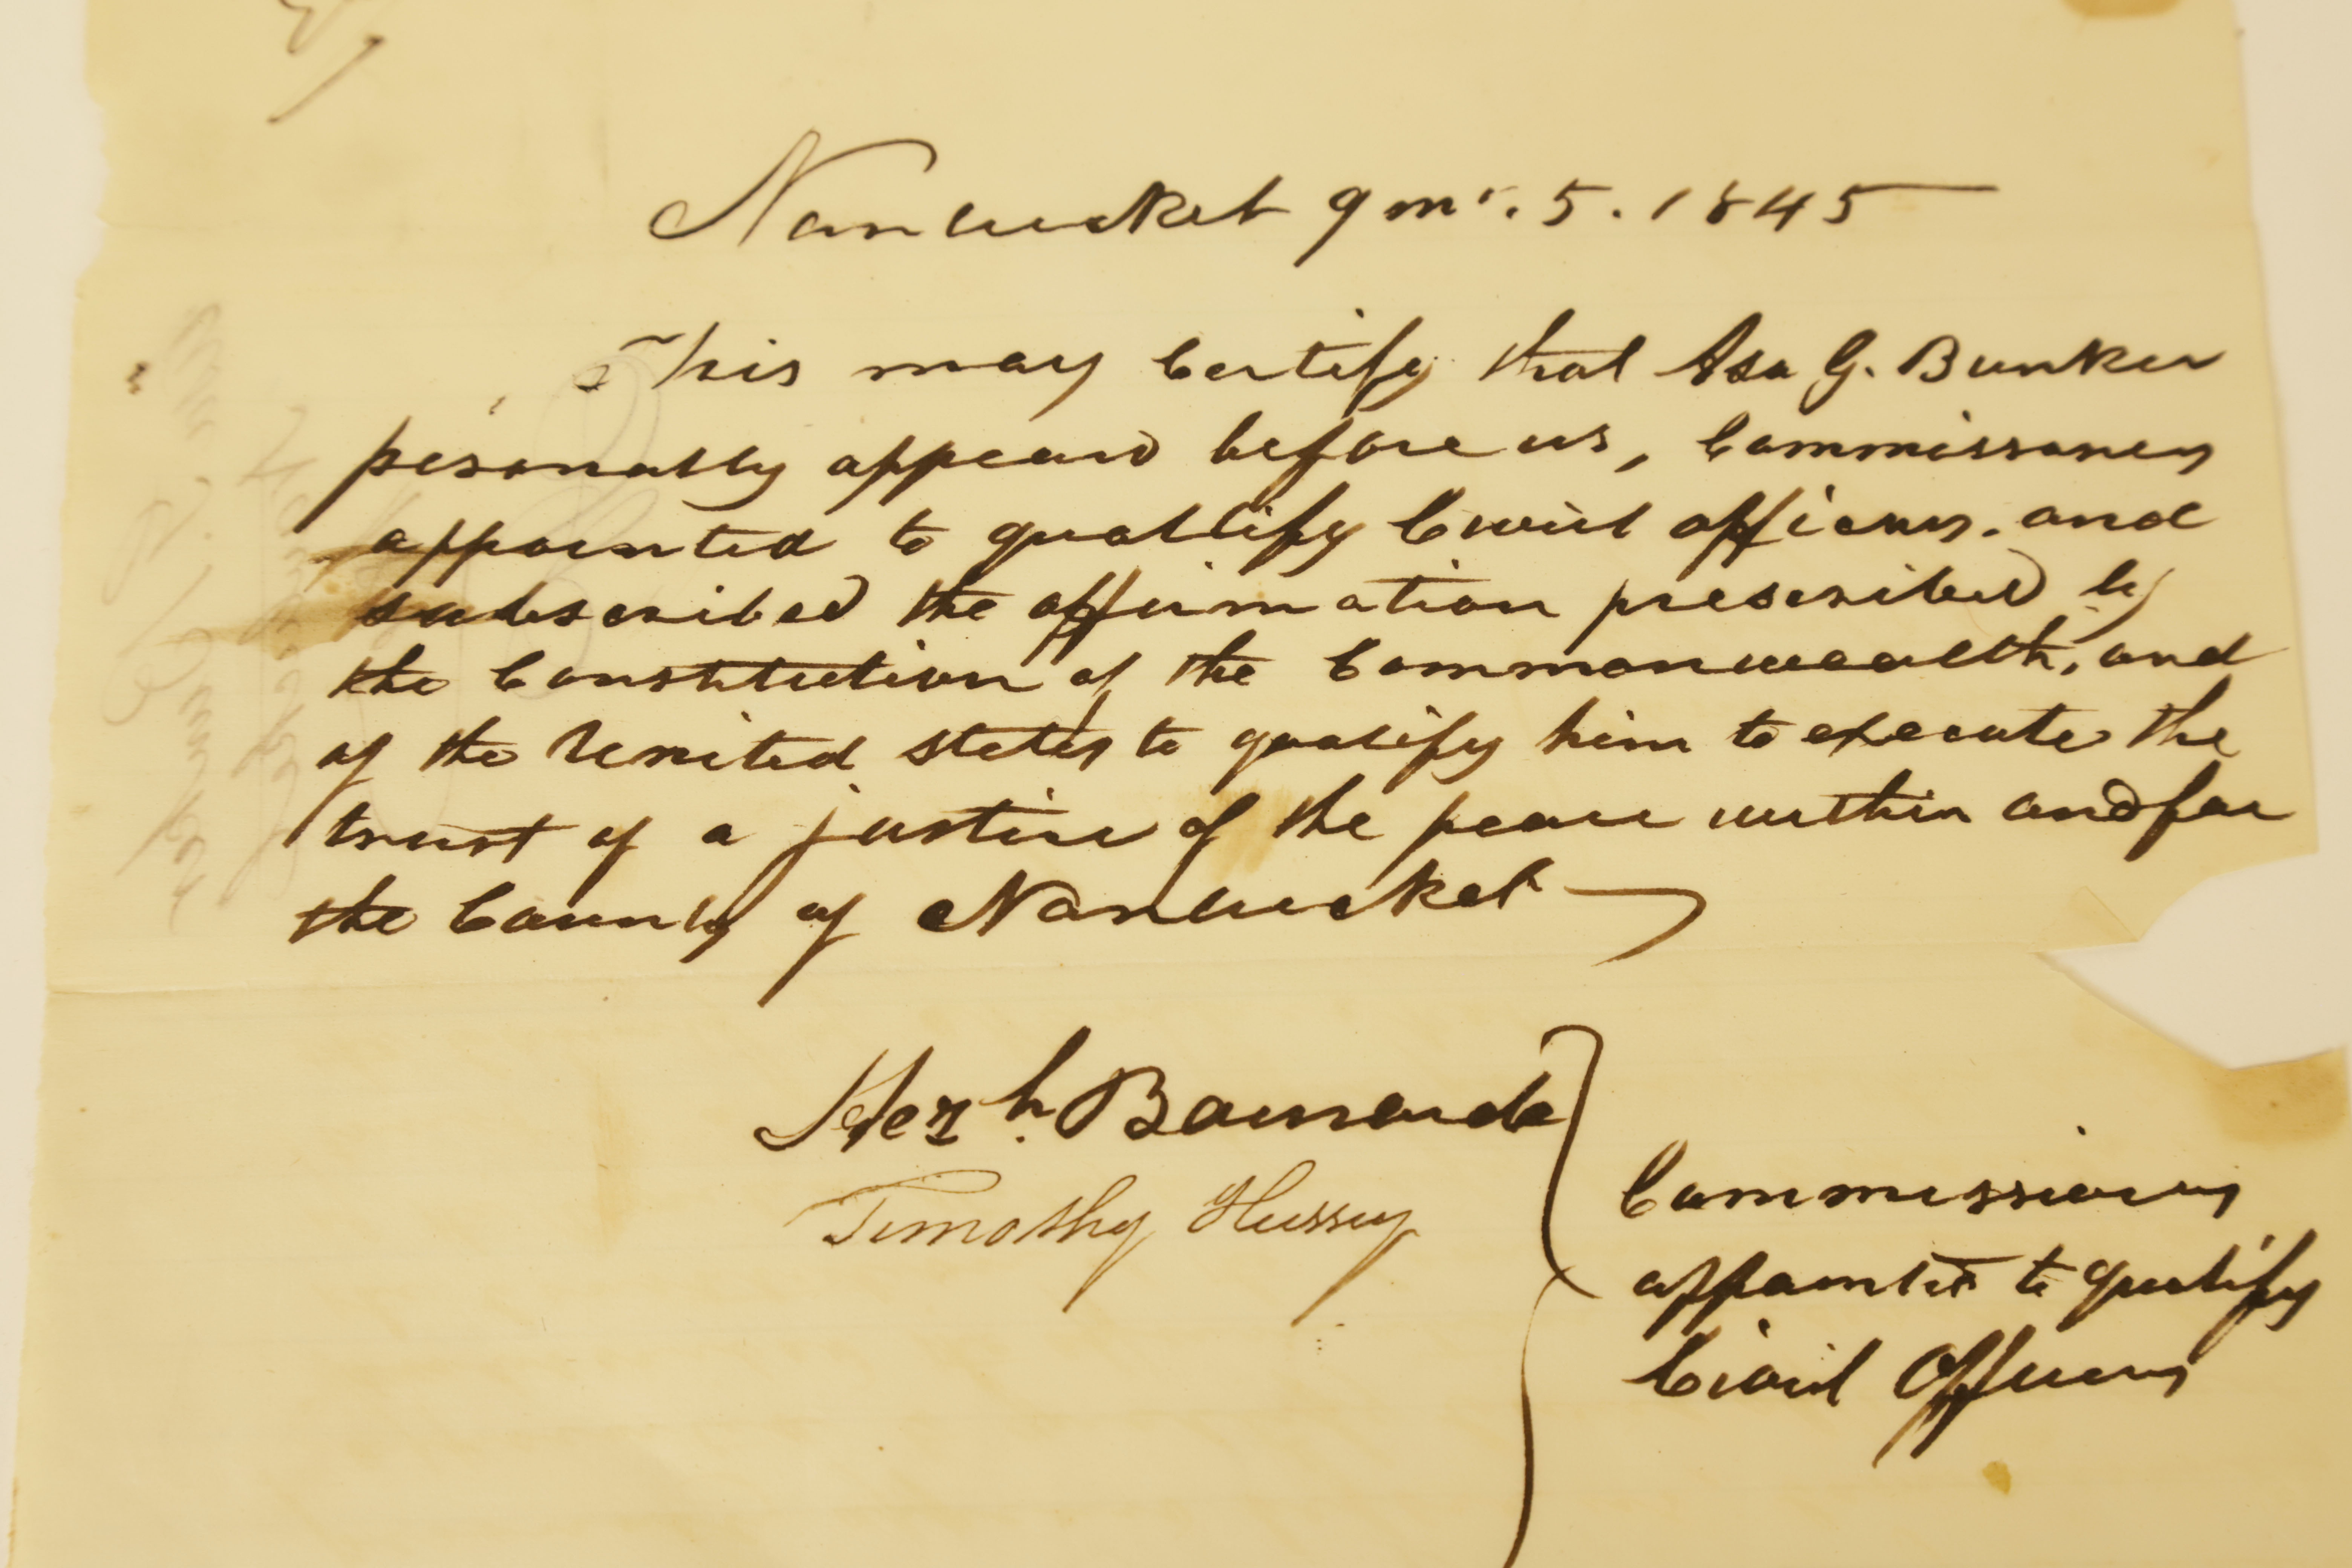 Nantucket 9 mo. 5. 1845
This may Certify that Asa G. Bunker
pesonally appeard before us, Commissoners
appointed to quallify Civil officers. and
subscribed the affirmation prescribed by
the Constitution of the Commonwealth, and
of the United States to qualify him to execute the
trust of a justice of the peace within and for
the County of Nantucket
Hezh. Barnard
Timothy Hussey
Commissioners
appointed to qualify
Civil Officers